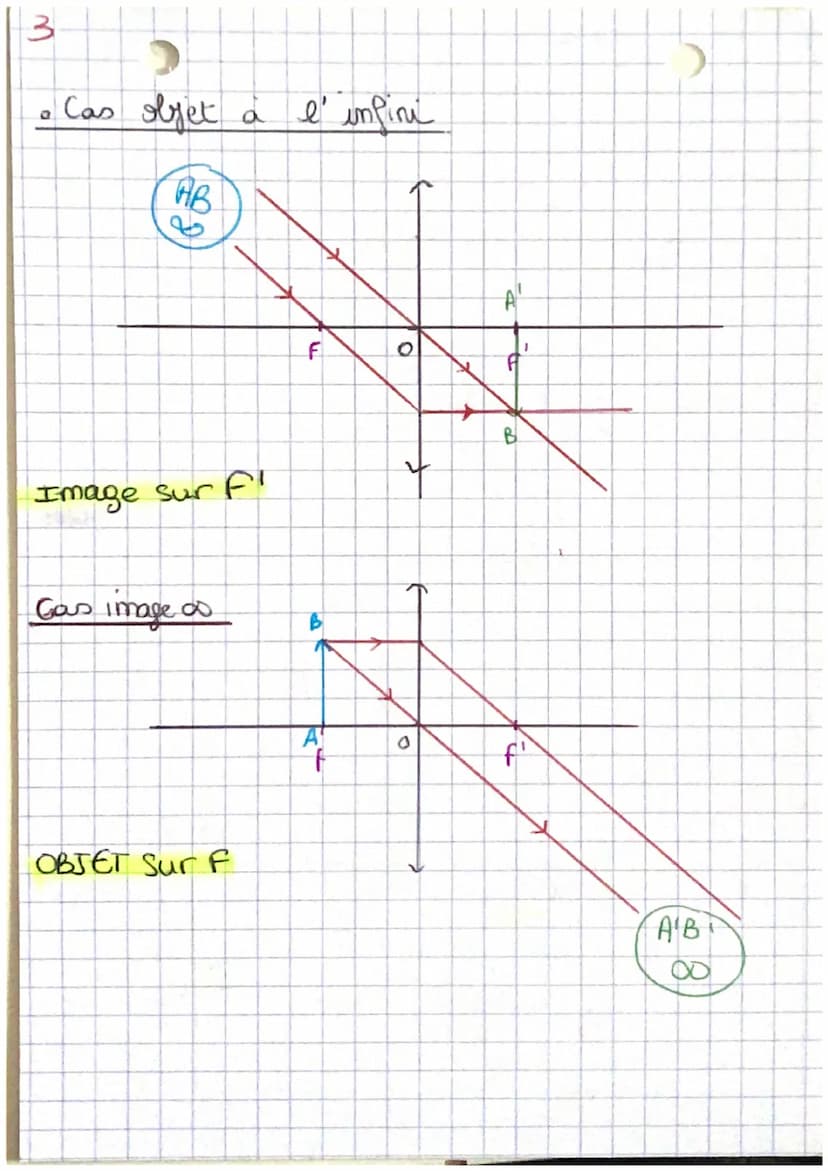 3
• Cas objet à l'infini
AB
∞
A'
F
O
F'
B
Image sur F'
Cas image ∞
B
A
F
O
F'
OBJET sur F
A'B'
∞